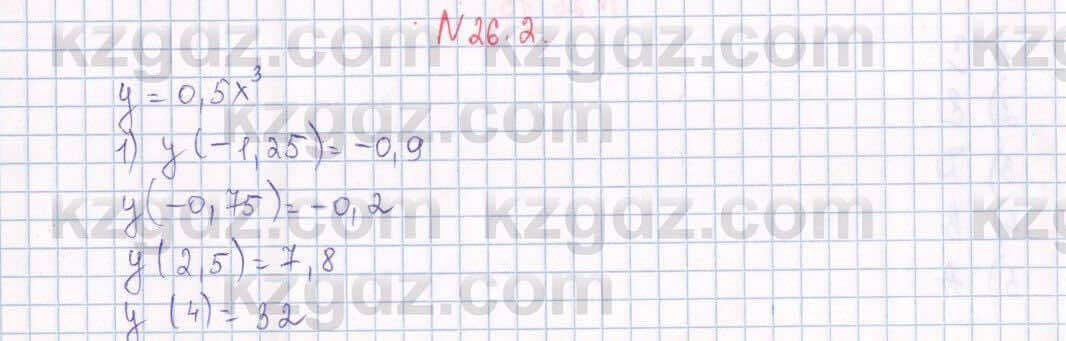 N 26.2.
y = 0,5x³
1) y(-1,25) = -0,9
y(-0,75) = -0,2
y(2,5) = 7,8
y (4) = 32
kzgdz.com kzgdz.com kzgdz.com
kzgdz.com
kzgdz.com kzgdz.com kzgdz.com
kzgdz.com